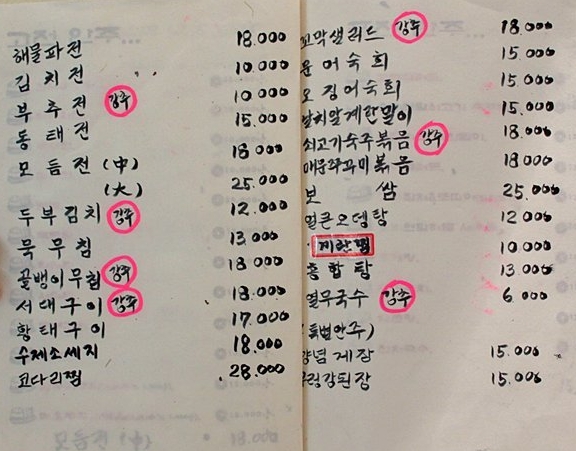 해물파전 18.000
김치전 10.000
부추전 강추 10.000
동태전 15.000
모듬전 (中) 18.000
(大) 25.000
두부김치 강추 12.000
묵무침 13.000
골뱅이무침 강추 18.000
서대구이 강추 18.000
황태구이 17.000
수제소세지 18.000
코다리찜 28.000
꼬막샐러드 강추 18.000
문어숙회 15.000
오징어숙회 15.000
날치알계란말이 15.000
쇠고기숙주볶음 강추 18.000
매운쭈꾸미볶음 18000
보쌈 25.000
얼큰오뎅탕 12000
계란찜 10.000
홍합탕 13.000
열무국수 강추 6.000
(특별안주)
양념게장 15.000
15.000